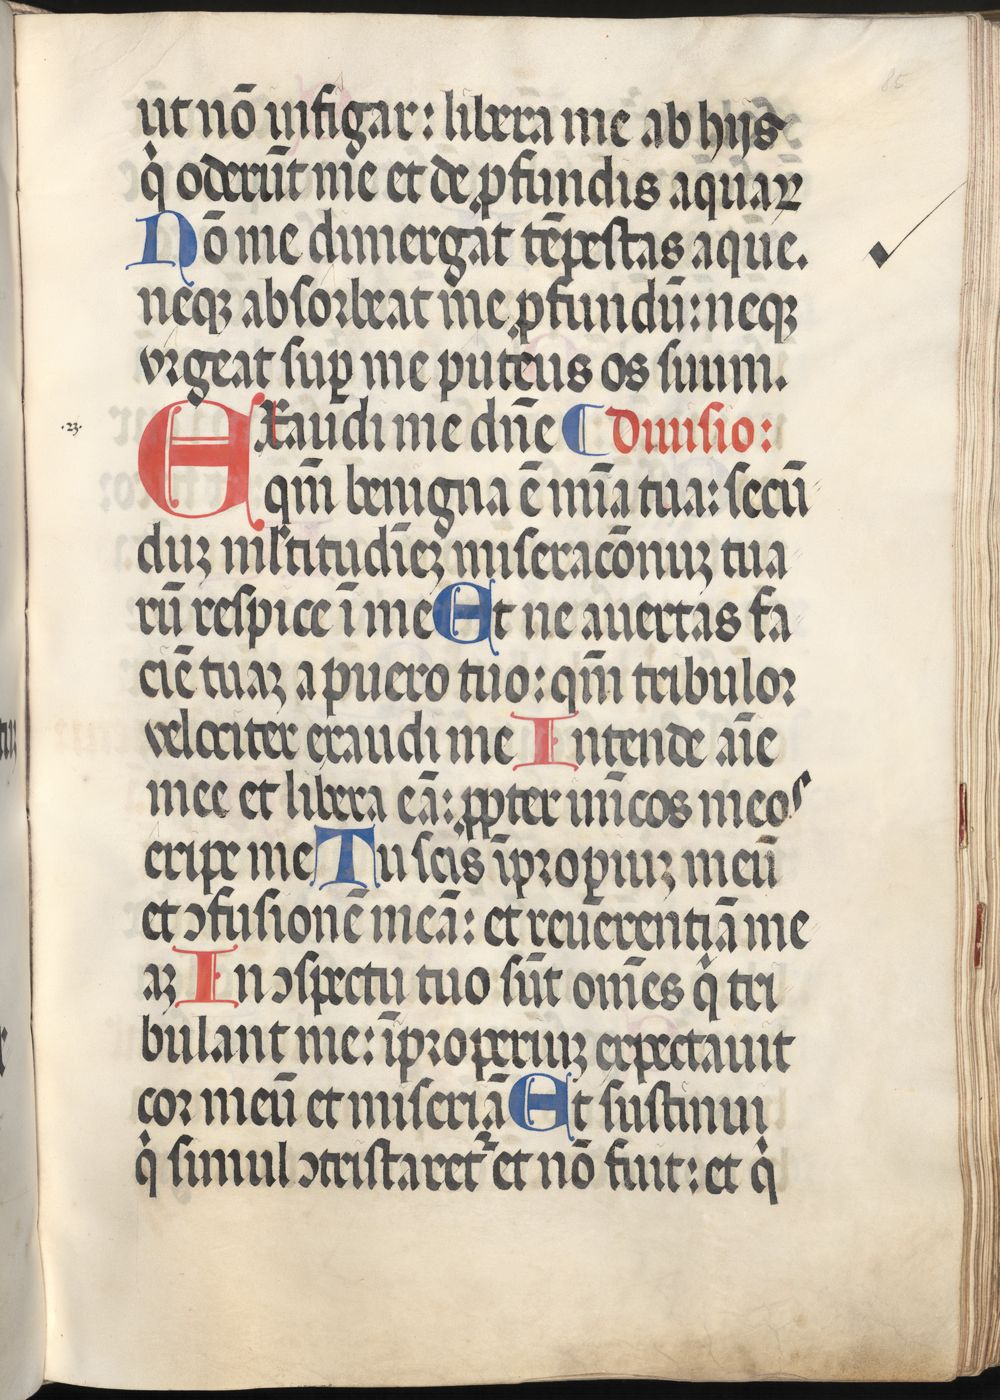 85
ut nō infigar: libera me ab hijs
q̇ oderūt me et de ꝓfundis aquaꝝ
Nō me dimergat tēpestas aque.
neqꝫ absorbeat me ꝓfundū: neqꝫ
vrgeat suꝑ me puteus os suum.
·23· Exaudi me dn̄e ¶ Diuisio:
qm̄ benigna ē mīa tua: secū
duꝫ mltitudīeꝫ miseracōnuꝫ tua
rū respice ī me Et ne auertas fa
ciē tuaꝫ a puero tuo: qm̄ tribulor
velociter exaudi me Intende aīe
mee et libera eā: ꝓpter inīcos meos
eripe me Tu scis īproꝑiuꝫ meū
et ɔfusionē meā: et reuerentiā me
aꝫ In ɔspectu tuo sūt om̄es q̇ tri
bulant me: īproperiuꝫ expectauit
cor meū et miseriā Et sustinui
q̇ simul ɔtristaret᷑ et nō fuit: et q̇